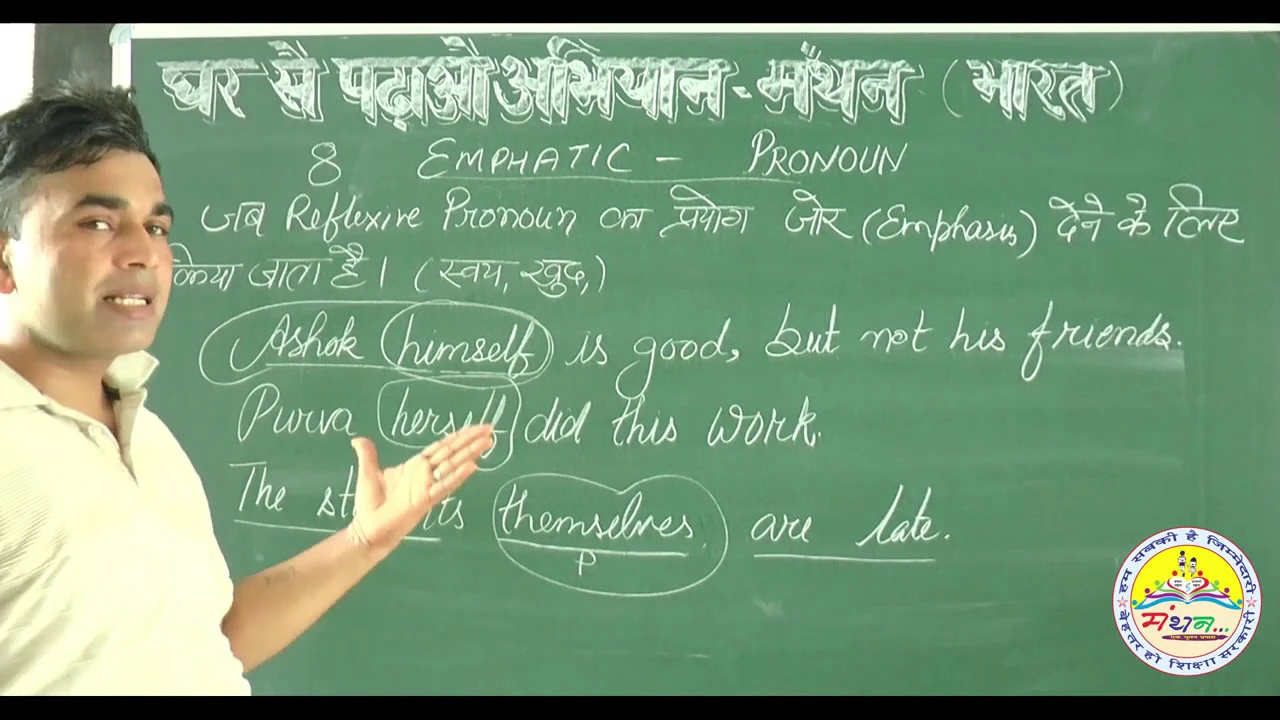 घर से पढ़ाओ अभियान - मंथन (भारत)
8 EMPHATIC - PRONOUN
जब Reflexive Pronoun का प्रयोग जोर (Emphasis) देने के लिए
किया जाता है। (स्वय, खुद,)
Ashok himself is good, but not his friends.
Purva herself did this work.
The themselves are late.
P
हम सबकी है जिम्मेदारी
मंथन...
एक नूतन प्रयास
बेहतर हो शिक्षा सरकारी